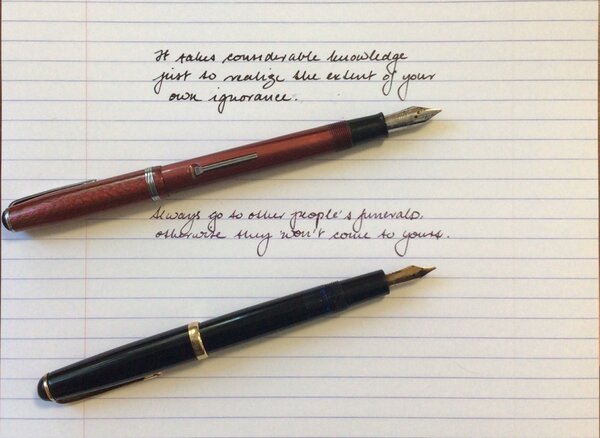 It takes considerable knowledge
just to realize the extent of your
own ignorance.
Always go to other people's funerals,
otherwise they won't come to yours.